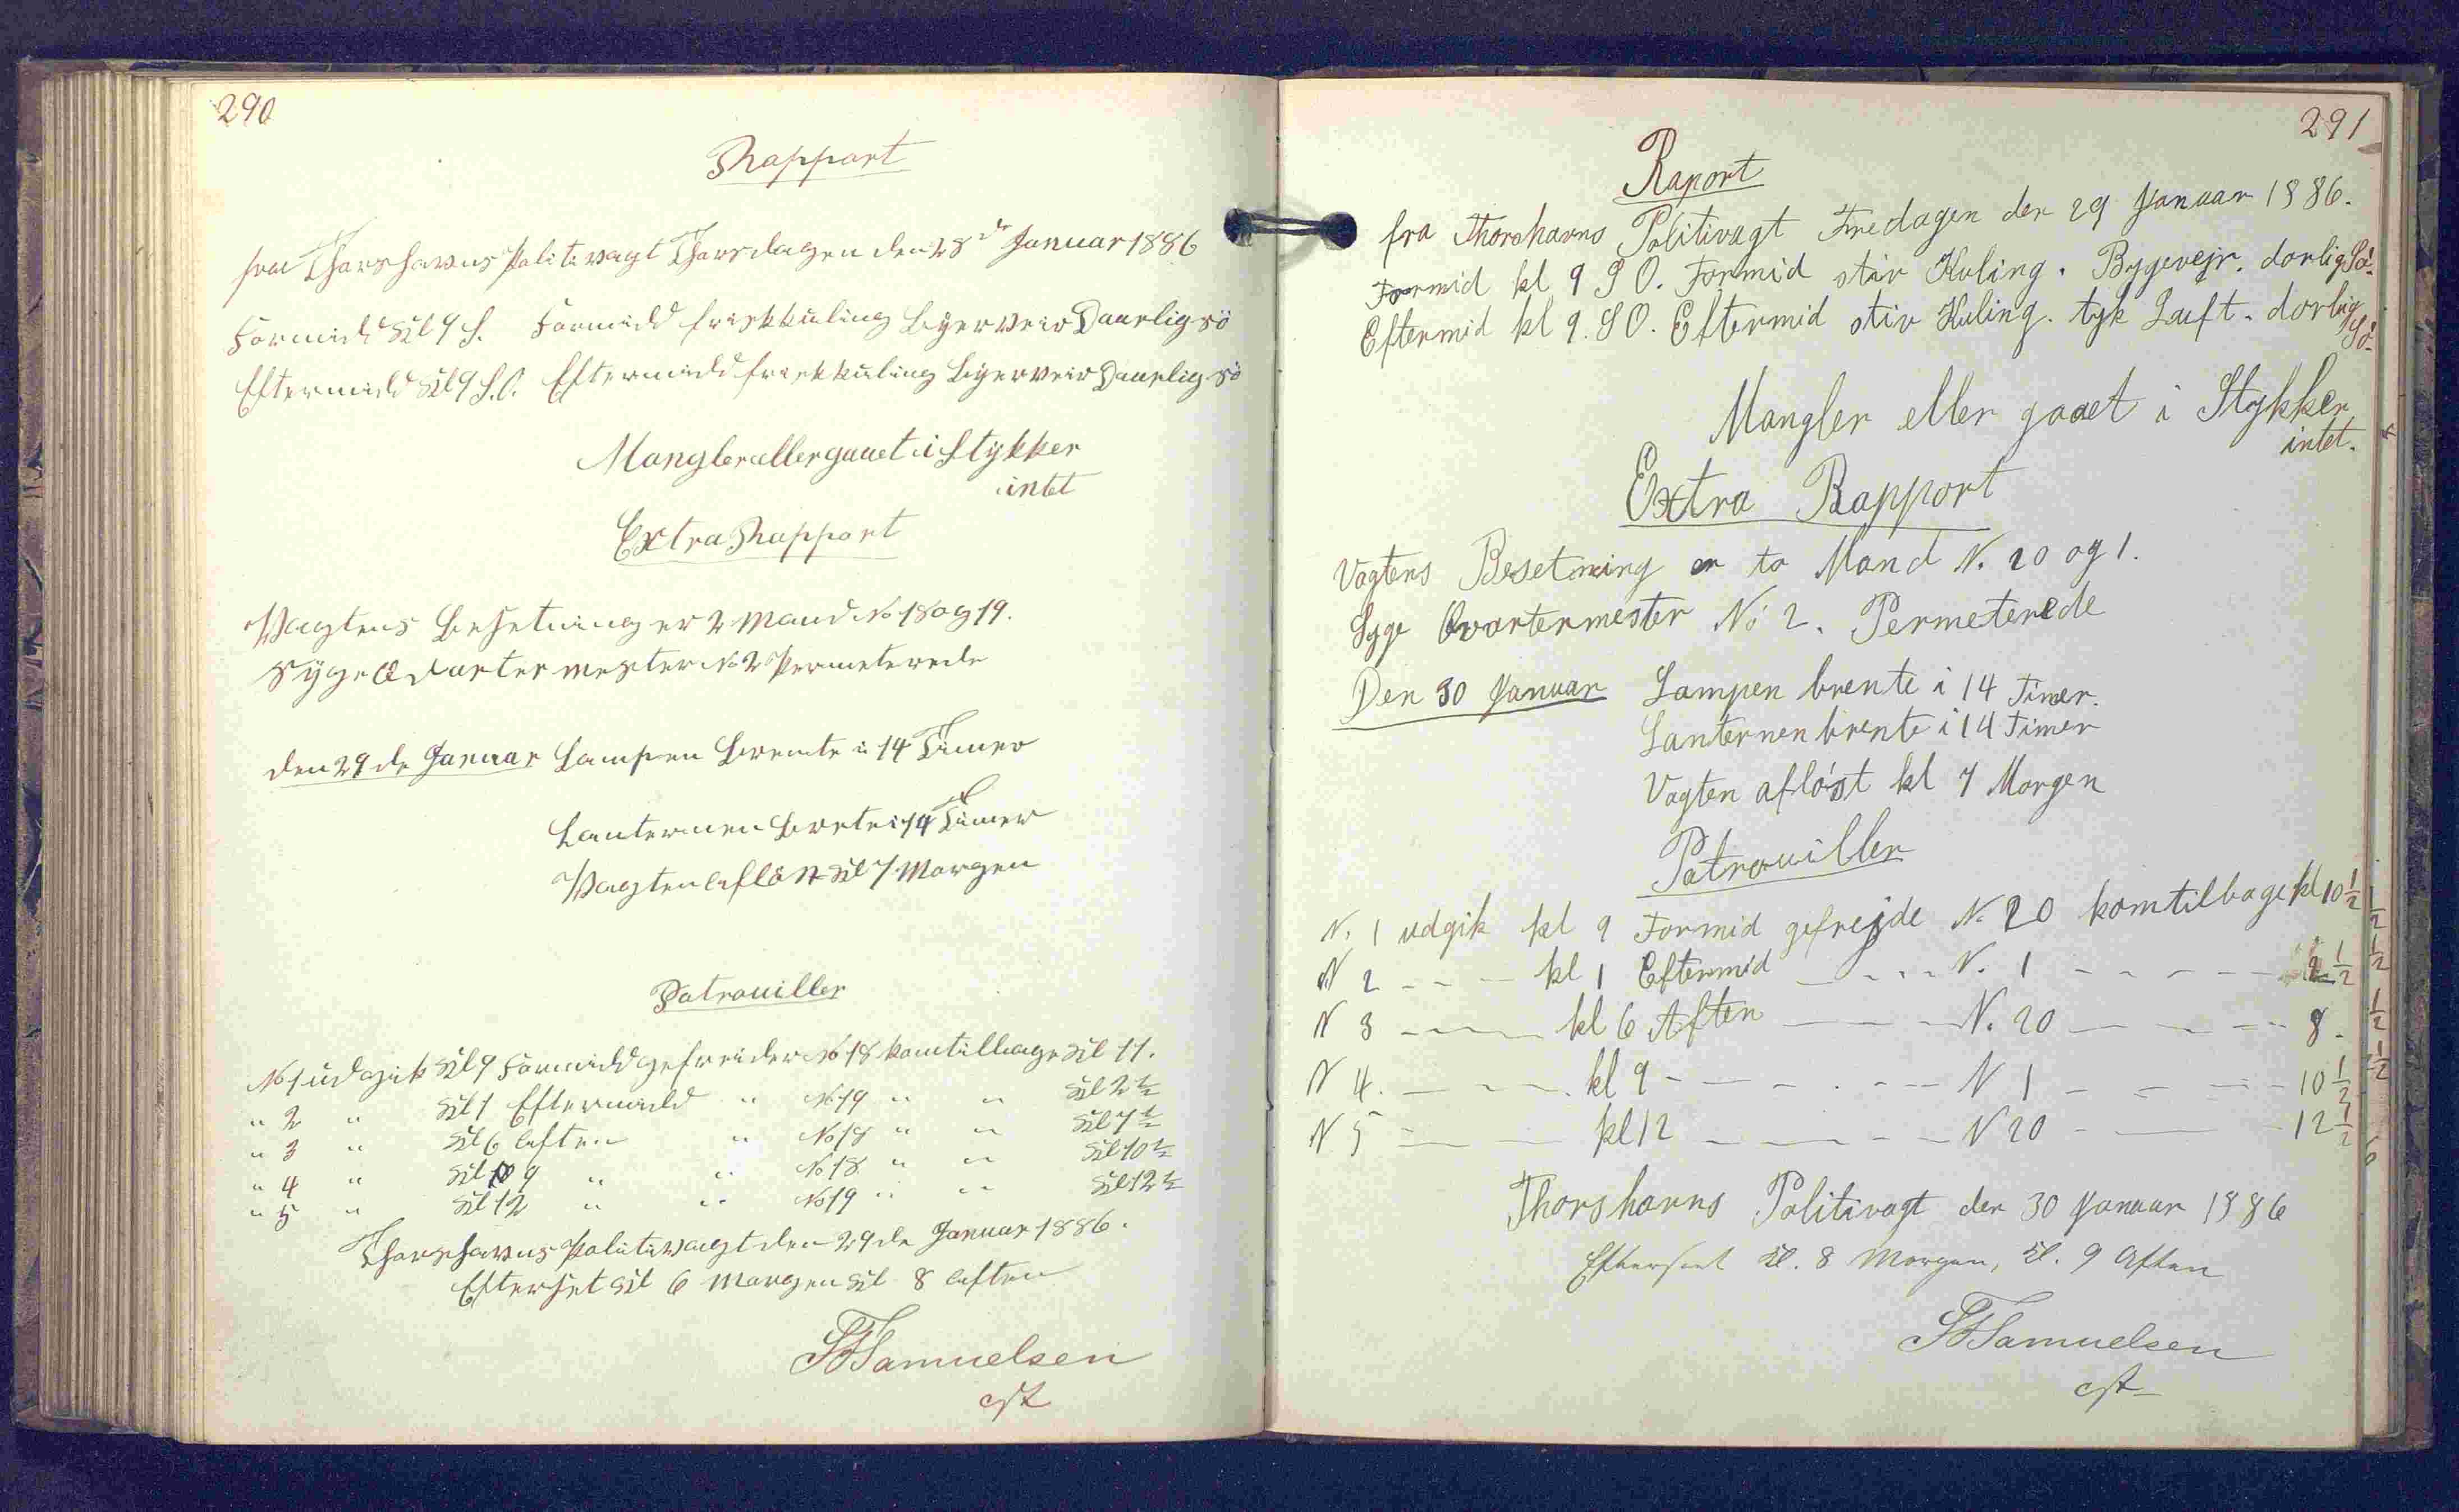 290
Rapport
fra Thorshavns Politivagt Thorsdagen den 28de Januar 1886
Formidd Kl 9 S. Formidd frisk kuling Byerveir Daarlig sö
Eftermidd Kl 9 S.O. Eftermidd frisk kuling Byerveir Daarlig sö
Mangler eller gaaet i Stykker
intet
Extra Rapport
Vagtens Besetning er 2 Mand No 18 og 19.
Syge Qvartermester No 2 Permeterede
den 29de Januar Lampen Brente i 14 Timer
Lanternen Brente i 14 Timer
Vagten aflöst Kl 7 Morgen
Patrouiller
No 1 udgik Kl 9 Formidd gefreider No 18 kom tilbage Kl 11.
" 2 " Kl 1 Eftermidd " No 19 " " Kl 2 1/2
" 3 " Kl 6 Aften " No 18 " " Kl 7 1/2
" 4 " Kl 9 " " No 18 " " Kl 10 1/2
" 5 " Kl 12 " " No 19 " " Kl 12 1/2
Thorshavns Politivagt den 29de Januar 1886.
Efterset Kl 6 Morgen Kl 8 Aften
Samuelsen
291
Raport
fra Thorshavns Politivagt Fredagen den 29 Januar 1886.
Formid kl 9 SO. Formid stiv Kuling. Bygevejr. dorlig Sö.
Eftermid kl 9. SO. Eftermid stiv Kuling. tyk Luft. dorlig
Sö.
Mangler eller gaaet i Stykker
intet.
Extra Rapport
Vagtens Besetning er to Mand N. 20 og 1.
Syge Qvartermester No 2. Permeterede
Den 30 Januar Lampen brente i 14 Timer.
Lanternen brente i 14 Timer
Vagten aflöst kl 7 Morgen
Patrouiller
N. 1 udgik kl 9 Formid gefrejde N. 20 kom tilbage kl 10 1/2
N 2 - - - kl 1 Eftermid - - - N. 1 - - - - - 2 1/2
N 3 - - - kl 6 Aften - - - N. 20 - - - - 8.
N 4. - - - kl 9 - - - - - N 1 - - - - 10 1/2
N 5 - - kl 12 - - - - N 20 - - - 12 1/2
Thorshavns Politivagt den 30 Januar 1886
Efterset Kl. 8 Morgen, Kl. 9 Aften
Samuelsen